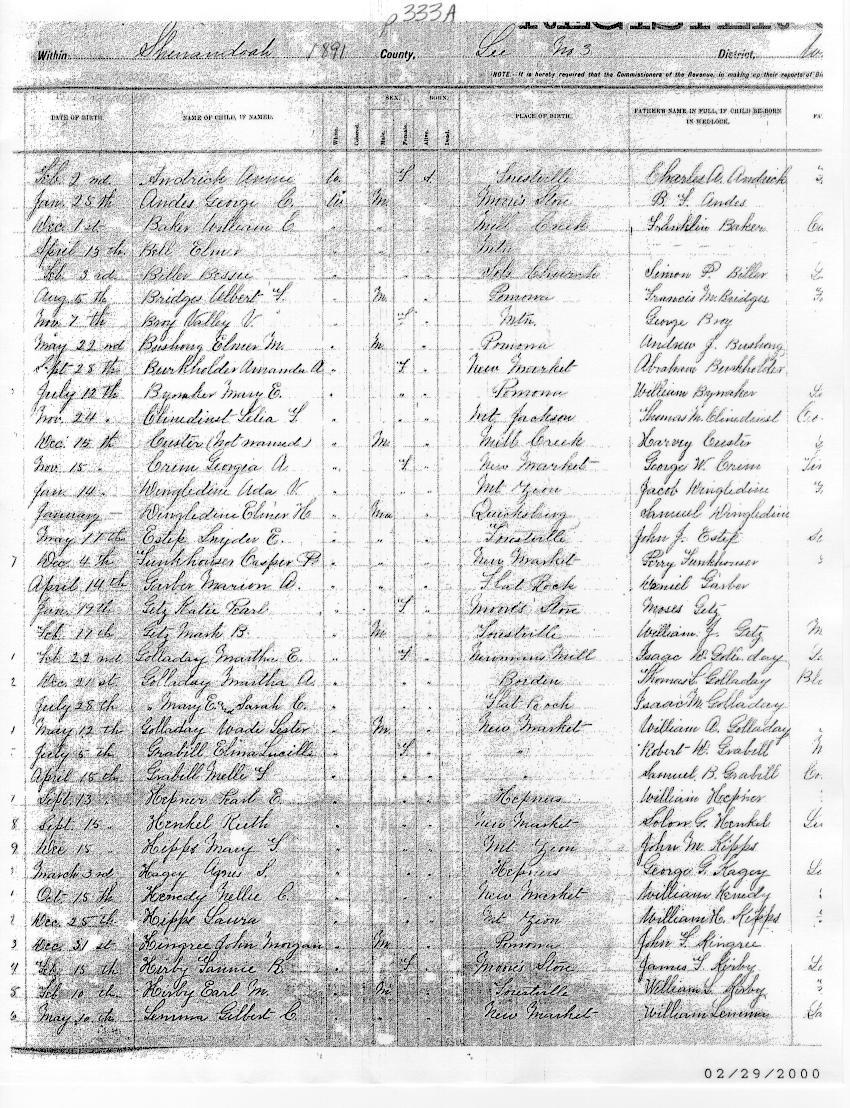 p 333A
REGISTER
Within Shenandoah 1891 County, Lee No 3 District,
NOTE.—It is hereby required that the Commissioners of the Revenue, in making up their reports of Bi
SEX. BORN.
DATE OF BIRTH. NAME OF CHILD, IF NAMED. White. Colored. Male. Female. Alive. Dead. PLACE OF BIRTH. FATHER'S NAME IN FULL, IF CHILD BE BORN IN WEDLOCK.
Feb. 2nd Andrick Annie W. F A Forestville Charles A. Andrick
Jan. 28th Andes George C. W. M " Moore's Store B. F. Andes
Dec. 1st Baker William E. " " " Mill Creek Franklin Baker
April 13th Bell Elmer " " " Mtn.
Feb. 3rd Biller Bessie " " " Church Simon P. Biller
Aug 5th Bridges Albert F. " M " Pomona Francis M. Bridges
Nov. 7th Broy Valley V. " F " Mtn. George Broy
May 22nd Bushong Elmer M. " M " Pomona Andrew J. Bushong
Sept 28th Burkholder Amanda A " F " New Market Abraham Burkholder
July 12th Bymaker Mary E. " " " Pomona William Bymaker
Nov. 24 Clinedinst Lelia F. " " " Mt. Jackson Thomas M. Clinedinst
Dec. 15th Custer (not named) " M " Mill Creek Harvey Custer
Nov. 15 Crim Georgia A. " F " New Market George W. Crim
Jan. 14 Wingledine Ada V. " " " Mt Zion Jacob Wingledine
January — Wingledine Elmer H " Ma " Quicksburg Samuel Wingledine
May 17th Estep Snyder E. " " " Forestville John J. Estep
7 Dec. 4th Funkhouser Casper P. " " " New Market Perry Funkhouser
April 14th Garber Marion A. " " " Flat Rock Daniel Garber
Jan. 19th Getz Katie Pearl " F " Moore's Store Moses Getz
Feb. 17th Getz Mark B. " M " Forestville William J. Getz
1 Feb. 22nd Golladay Martha E. " F " Newmans Mill Isaac W. Golladay
2 Dec. 21st Golladay Martha A. " " " Borden Thomas L. Golladay
July 28th " Mary E. and Sarah C. " " " Flat Rock Isaac M. Golladay
1 May 12th Golladay Wade Lester " M " New Market William A. Golladay
July 5th Grabill Elma Lucille " F " " Robert W. Grabill
April 18th Grabill Melle F " " " " Samuel B. Grabill
Sept. 13 Hepner Pearl E. " " " Hepners William Hepner
8 Sept. 15 Henkel Ruth " " " New Market Solon G. Henkel
9 Dec 15 Kipps Mary F " " " Mt Zion John M. Kipps
March 3rd Kagey Agnes S. " " " Hepners George G. Kagey
Oct 15th Kenedy Nellie C. " " " New Market William Kenedy
2 Dec. 25th Kipps Laura " " " Mt Zion William H. Kipps
3 Dec. 31st Kingree John Morgan " M " Pomona John F. Kingree
4 Feb. 15th Kirby Fannie B. " F " Moore's Store James F. Kirby
5 Feb 10th Kirby Earl M. " M " Forestville William L. Kirby
6 May 10th Lemma Gilbert C. " " " New Market William Lemma
02/29/2000